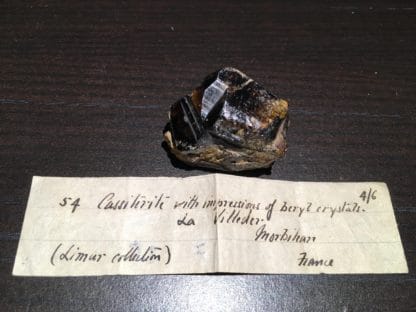 54 Cassiterite with impressions of Beryl crystals. 4/6
La Villeder.
Morbihan
(Limur collection) France